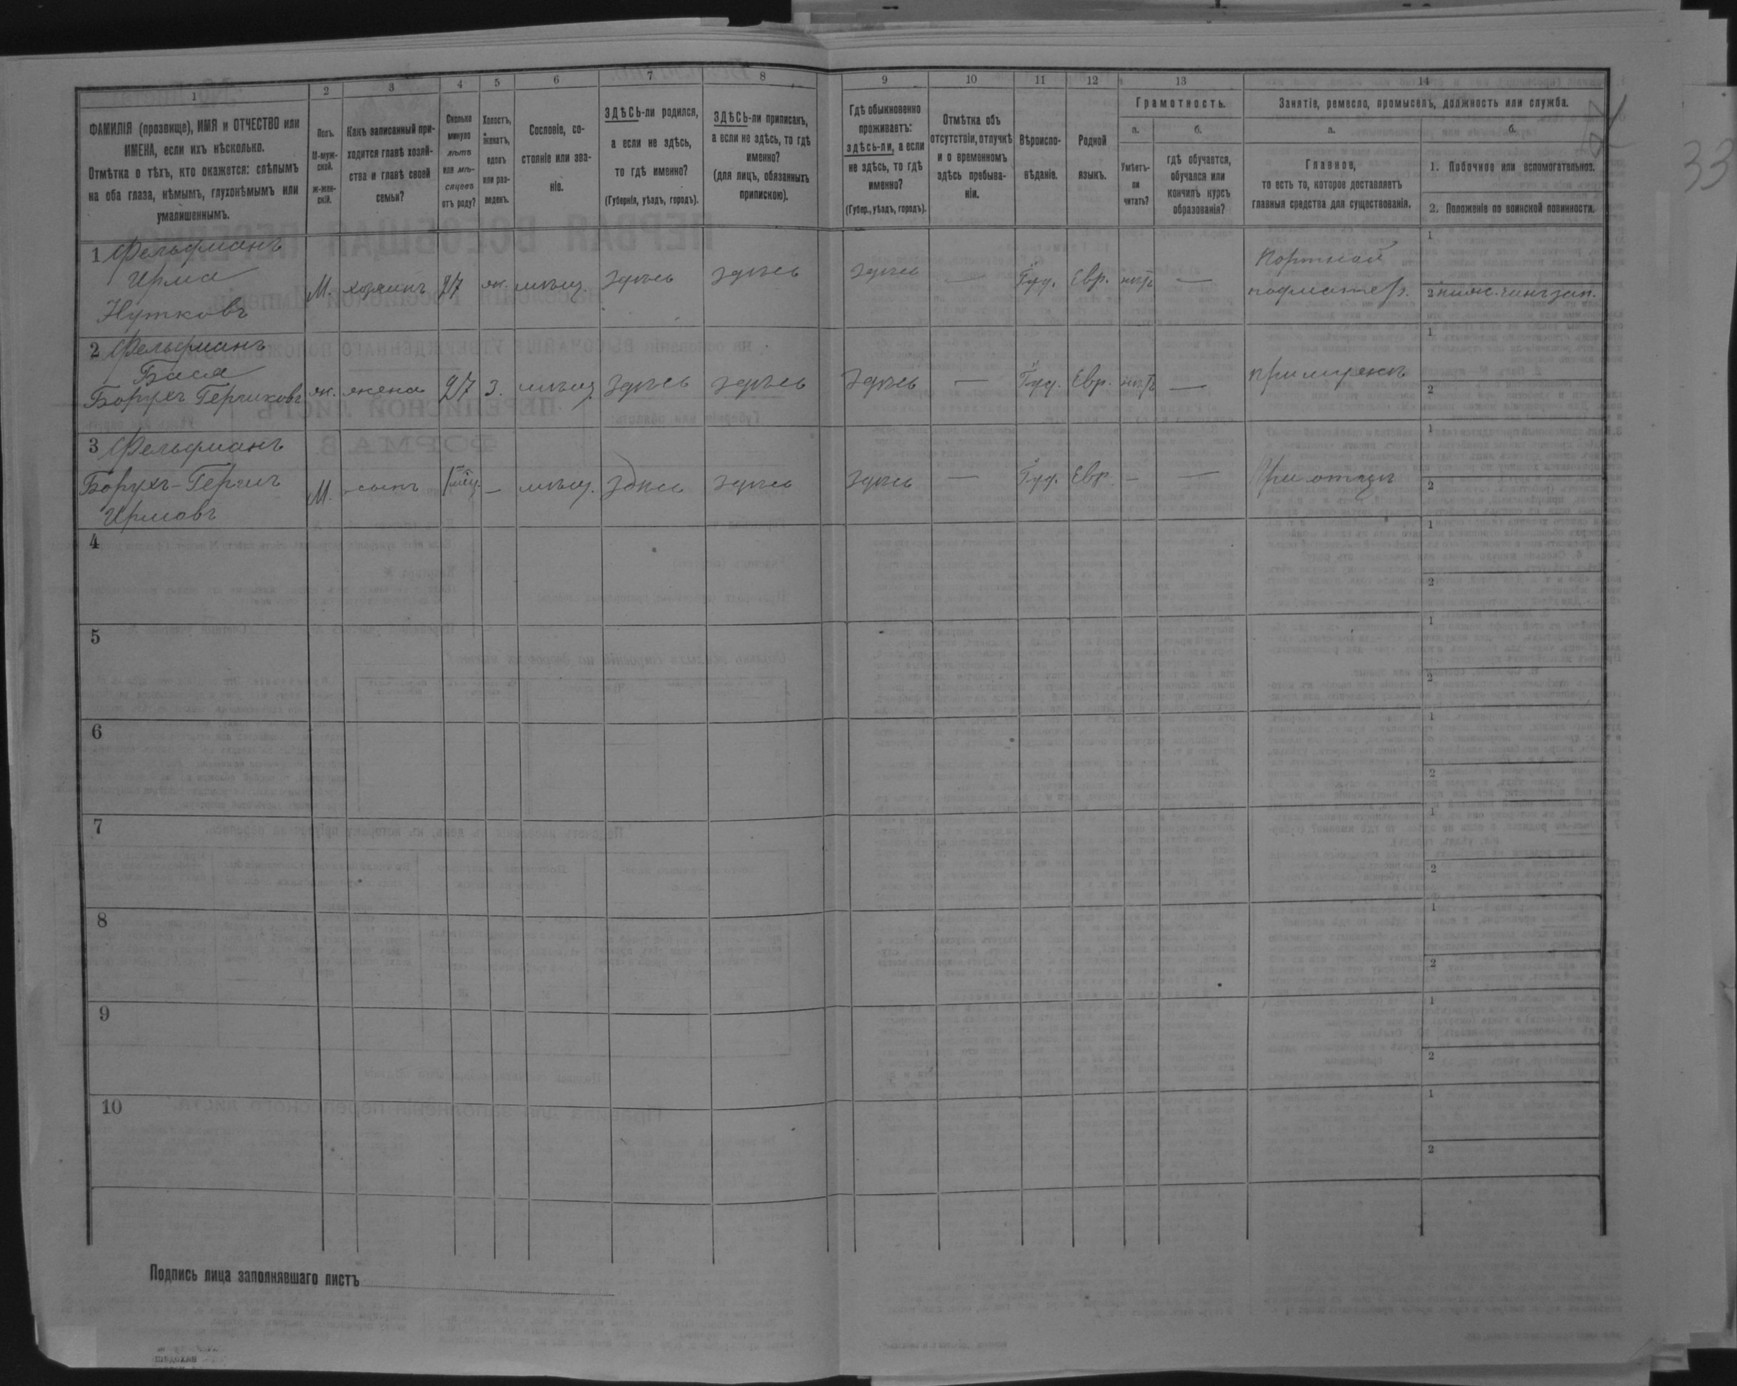 33
1
2
3
4
5
6
7
8
9
10
11
12
13
14
ФАМИЛІЯ (прозвище), ИМЯ и ОТЧЕСТВО или
ИМЕНА, если ихъ нѣсколько.
Отмѣтка о тѣхъ, кто окажется: слѣпымъ
на оба глаза, нѣмымъ, глухонѣмымъ или
умалишеннымъ.
Полъ.
М-муж-
ской.
ж-жен-
скій.
Какъ записанный при-
ходится главѣ хозяй-
ства и главѣ своей
семьи?
Сколько
минуло
лѣтъ
или мѣ-
сяцевъ
отъ роду?
Холостъ,
женатъ,
вдовъ
или раз-
веденъ.
Сословіе, со-
стояніе или зва-
ніе.
ЗДѢСЬ-ли родился,
а если не здѣсь,
то гдѣ именно?
(Губернія, уѣздъ, городъ).
ЗДѢСЬ-ли приписанъ,
а если не здѣсь, то гдѣ
именно?
(для лицъ, обязанныхъ
припискою).
Гдѣ обыкновенно
проживаетъ:
здѣсь-ли, а если
не здѣсь, то гдѣ
именно?
(Губер., уѣздъ, городъ).
Отмѣтка объ
отсутствіи, отлучкѣ
и о временномъ
здѣсь пребыва-
ніи.
Вѣроиспо-
вѣданіе.
Родной
языкъ.
Грамотность.
а.
б.
Умѣетъ-
ли
читать?
гдѣ обучается,
обучался или
кончилъ курсъ
образованія?
Занятіе, ремесло, промыселъ, должность или служба.
а.
б.
Главное,
то есть то, которое доставляетъ
главныя средства для существованія.
1. Побочное или вспомогательное.
2. Положеніе по воинской повинности.
1 Фельдманъ
Ирма
М. хозяинъ 27 ж. мѣщ. здѣсь здѣсь здѣсь — Іуд. Евр. — Портной
1
2
2 Фельдманъ
Бася
Борухъ Гершковъ ж. жена 27 з. мѣщ здѣсь здѣсь здѣсь — Іуд. Евр. — при мужѣ
1
2
3 Фельдманъ
Борухъ-Гершъ
Ирмовъ
М. сынъ — мѣщ. здѣсь здѣсь здѣсь — Іуд. Евр. — — При отцѣ
1
2
4
1
2
5
1
2
6
1
2
7
1
2
8
1
2
9
1
2
10
1
2
Подпись лица заполнявшаго листъ